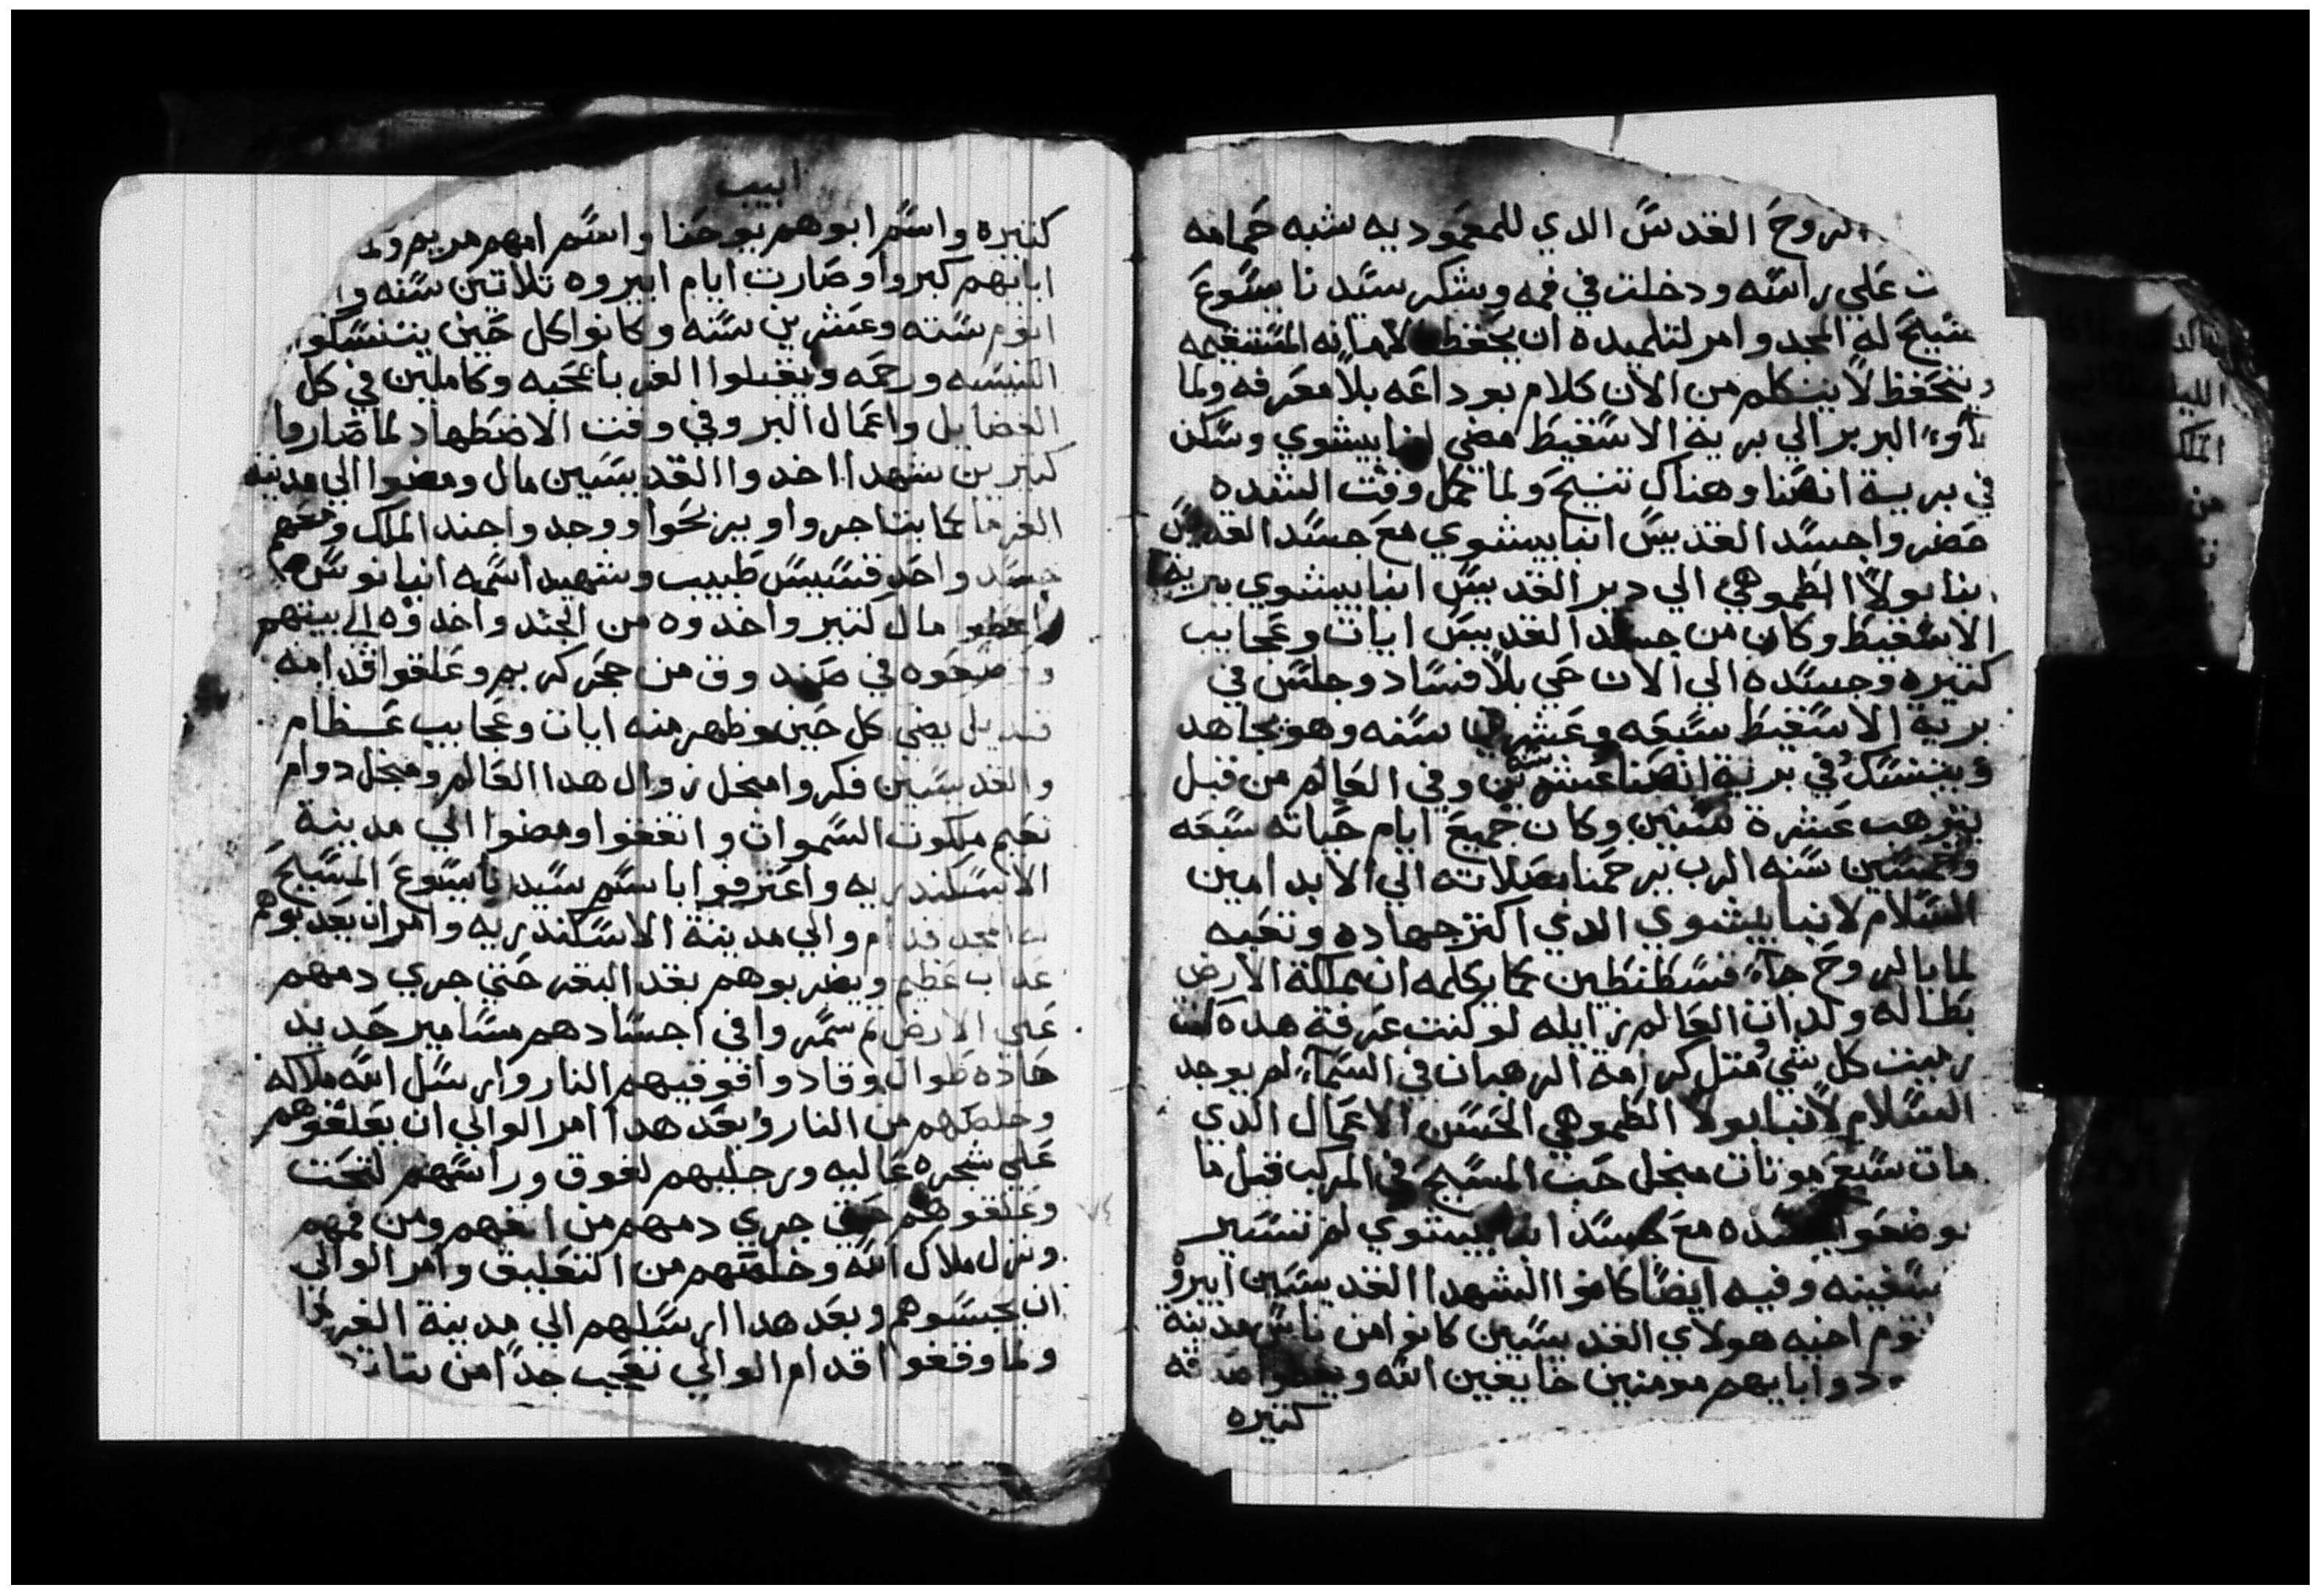 الروح القدس الدي للمعموديه شبه حمامه
علي راسه ودخلت في فمه وشكر سيدنا يسوع
المسيح له المجد وامر لتلميده ان يحفظ الامانه المستقيمه
ويتحفظ لا يتكلم من الان كلام بوداعه بلا معرفه ولما
البربر الي برية الاسقيط مضي انبا بيشوي وسكن
في برية انصنا وهناك تنيح ولما كمل وقت الشده
حضروا جسد القديس انبا بيشوي مع جسد القديس
انبا بولا الطموهي الي دير القديس انبا بيشوي ببرية
الاسقيط وكان من جسد القديس ايات وعجايب
كتيره وجسده الي الان حي بلا فساد وجلس في
برية الاسقيط سبعه وعشرين سنه وهو يجاهد
وينسك في برية انصنا عشرين سنه وفي العالم من قبل
يترهب عشرة سنين وكان جميع ايام حياته سبعه
وخمسين سنه الرب يرحمنا بصلاته الي الابد امين
السلام لانبا بيشوي الدي اكتر جهاده وتعبه
لما بالروح جاء قسطنطين كما يكلمه ان مملكة الارض
بطاله ولدات العالم زايله لو كنت عرفة هده كنت
رميت كل شي متل كرامة الرهبان في السماء لم يوجد
السلام لانبا بولا الطموهي الحسن الاعمال الدي
مات سبع موتات منجل حب المسيح في المركب قبل ما
يوضعوا جسده مع جسد انبا بيشوي لم تسير
سفينه وفيه ايضا كانوا الشهدا القديسين ابيرو
اتوم امنيه هولاي القديسين كانوا من ناس مدينة
وابايهم مومنين خايفين الله ويعطوا صدقه
كتيره
ابيب
كتيره واسم ابوهم يوحنا واسم امهم مريم ولما
ابايهم كبروا وصارت ايام ابيروه تلاتين سنه وا
اتوم سته وعشرين سنه وكانوا كل حين يتنسكوا
الكنيسه ورحمه ويقبلوا الغربا بمحبه وكاملين في كل
الفضايل واعمال البر وفي وقت الاضطهاد لما صاروا
كتيرين شهدا اخدوا القديسين مال ومضوا الي مدينة
الفرما كما يتاجروا ويربحوا ووجدوا جند الملك ومعهم
جسد واحد قسيس طبيب وشهيد اسمه انبا نوس
اعطوا مال كتير واخدوه من الجند واخدوه الي بيتهم
ووضعوه في صندوق من حجر كريم وعلقوا قدامه
قنديل يضي كل حين وظهر منه ايات وعجايب عظام
والقديسين فكروا منجل زوال هدا العالم ومنجل دوام
نعيم ملكوت السموات واتفقوا ومضوا الي مدينة
الاسكندريه واعترفوا باسم سيدنا يسوع المسيح
له المجد قدام والي مدينة الاسكندريه وامر ان يعدبوهم
عداب عظيم ويضربوهم بقد البقر حتي جري دمهم
علي الارض تم سمروا في اجسادهم مسامير حديد
حاده طوال وقادوا فوقيهم النار وارسل الله ملاكه
وخلصهم من النار وبعد هدا امر الوالي ان يعلقوهم
علي شجره عاليه ورجليهم لفوق وراسهم لتحت
وعلقوهم حتي جري دمهم من انفهم ومن فمهم
ونزل ملاك الله وخلصهم من التعليق وامر الوالي
ان يحبسوهم وبعد هدا ارسلهم الي مدينة الفرما
ولما وقفوا قدام الوالي تعجب جدا من